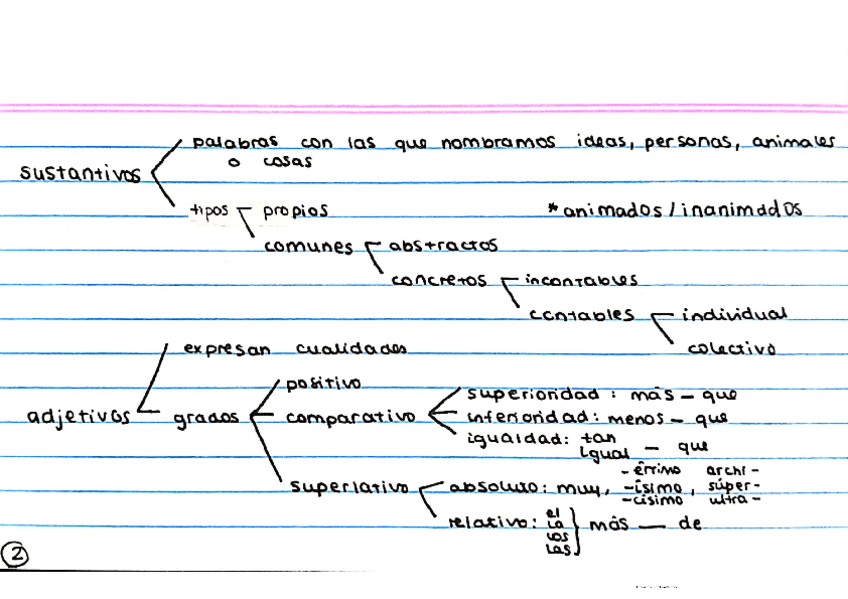 palabras con las que nombramos ideas, personas, animales
o cosas
sustantivos
tipos propios *animados/inanimados
comunes abstractos
concretos incontables
contables individual
colectivo
expresan cualidades
positivo
superioridad: más - que
adjetivos grados comparativo inferioridad: menos - que
igualdad: tan
igual - que
-érrimo archi-
superlativo absoluto: muy, -ísimo, súper-
-císimo ultra-
relativo: el
la
los
las } más — de
2